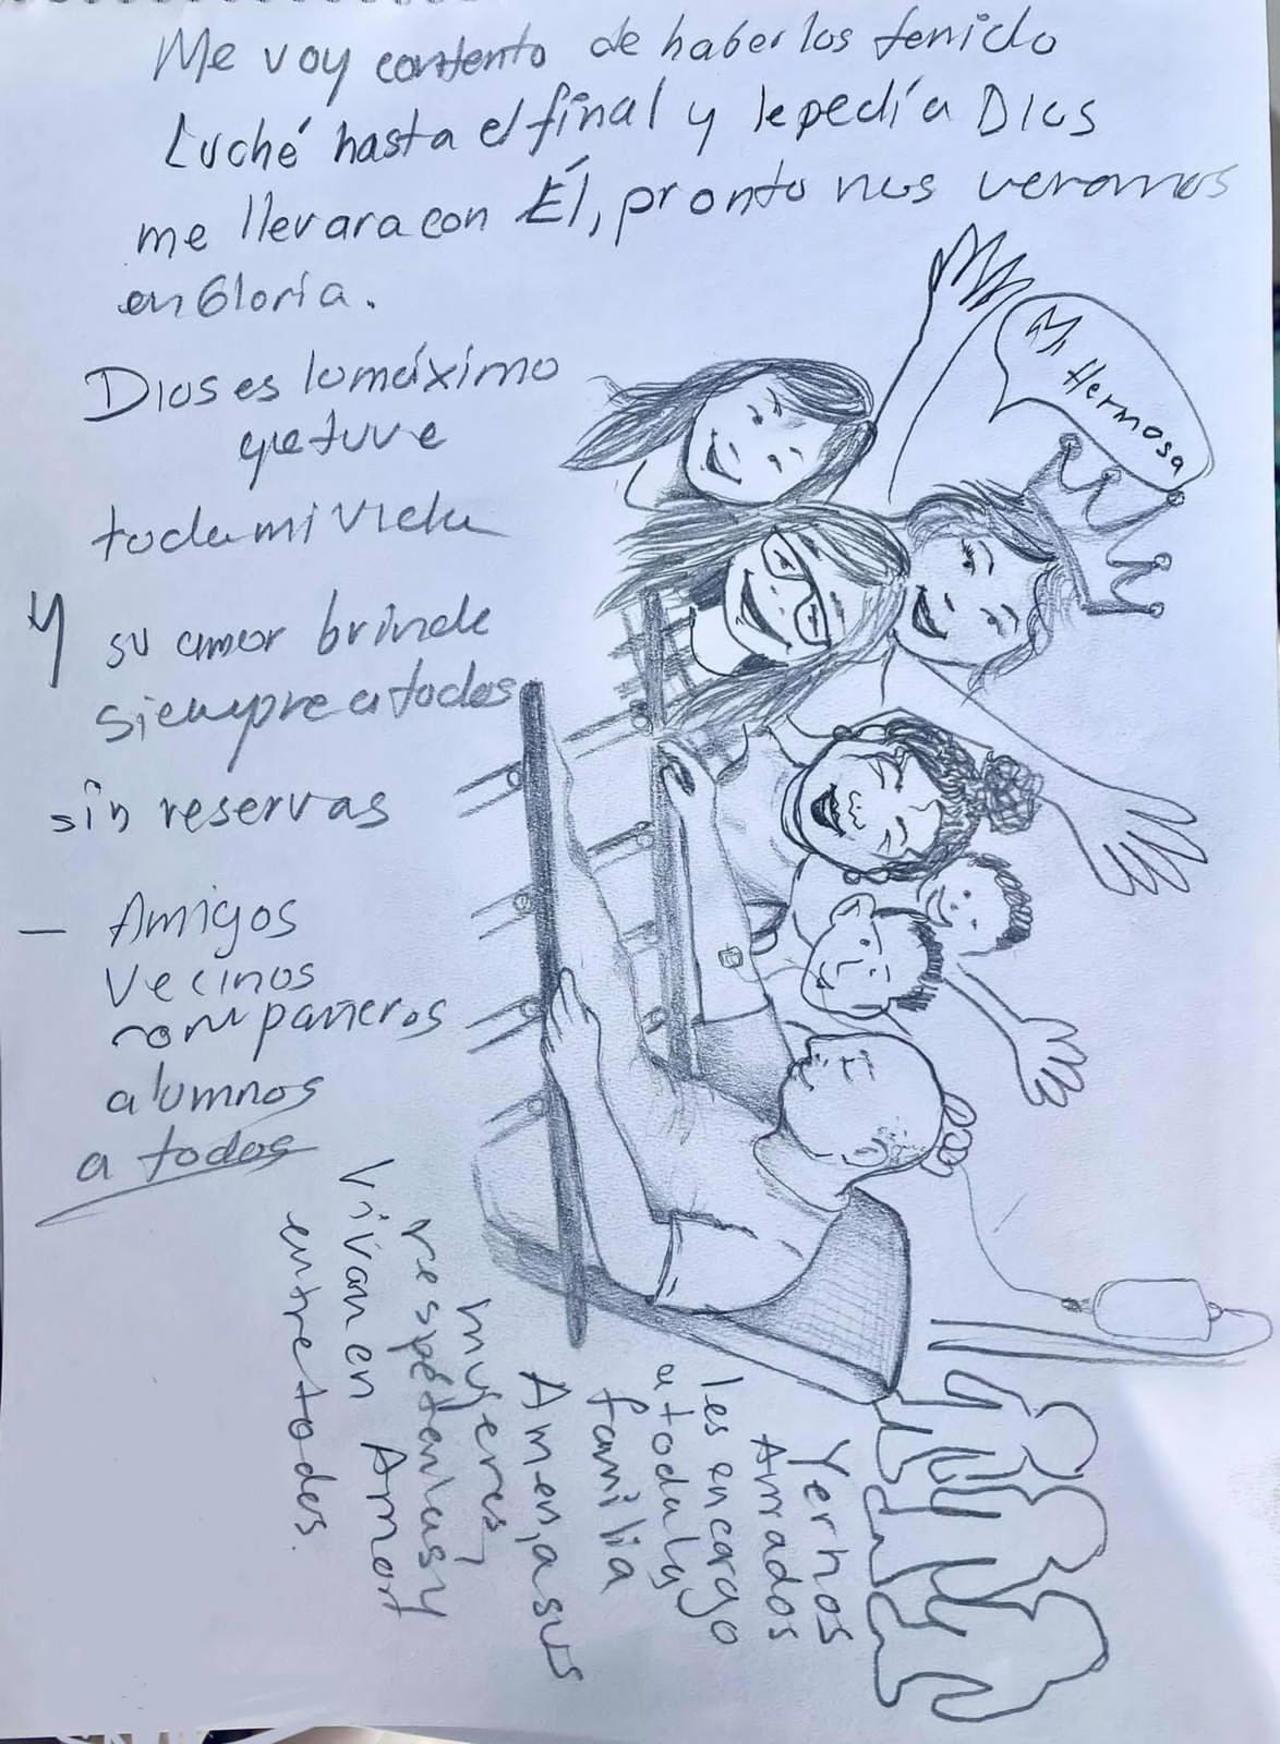 Me voy contento de haberlos tenido
Luché hasta el final y le pedí a Dios
me llevara con Él, pronto nos veramos
en Gloria.
Dios es lo máximo
que tuve
toda mi vida
Y su amor brinde
siempre a todos
sin reservas
- Amigos
Vecinos
compañeros
alumnos
a todos
Mi Hermosa
Yernos
Amados
les encargo
a toda la
familia
Amen, a sus
mujeres,
respétenlas y
Vivan en Amor
entre todos.